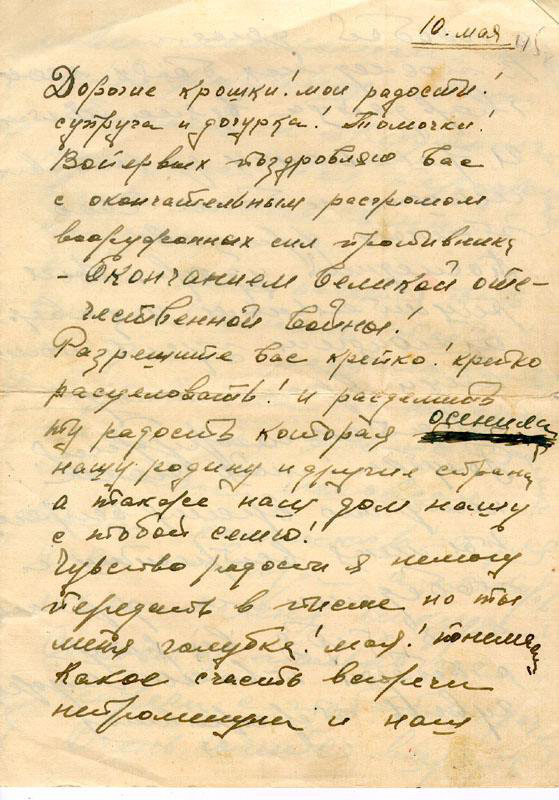 10. мая
Дорогие крошки! мои радости!
супруга и дочурка! Томочки!
Вопервых поздровляю вас
с окончательным разгромом
вооружонных сил противника
- Окончанием Великой оте-
чественной войны!
Разрешите вас крепко! крепко
расцеловать! и разделить
ту радость которая осенила
нашу родину и другие страны
а также наш дом нашу
с тобой семю!
Чувство радости я немогу
передать в писме но ты
меня голубка! моя! понемаеш
Какое счастье встречи
и наш